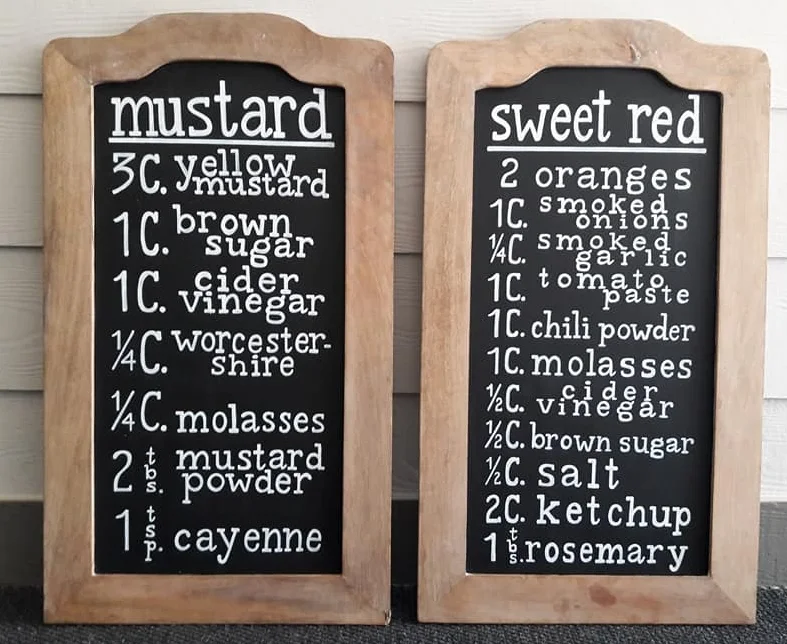 mustard
3C. yellow
mustard
1C. brown
sugar
1C. cider
vinegar
¼C. worcester-
shire
¼C. molasses
2 tbs. mustard
powder
1 tsp. cayenne
sweet red
2 oranges
1C. smoked
onions
¼C. smoked
garlic
1C. tomato
paste
1C. chili powder
1C. molasses
½C. cider
vinegar
½C. brown sugar
½C. salt
2C. ketchup
1 tbs. rosemary